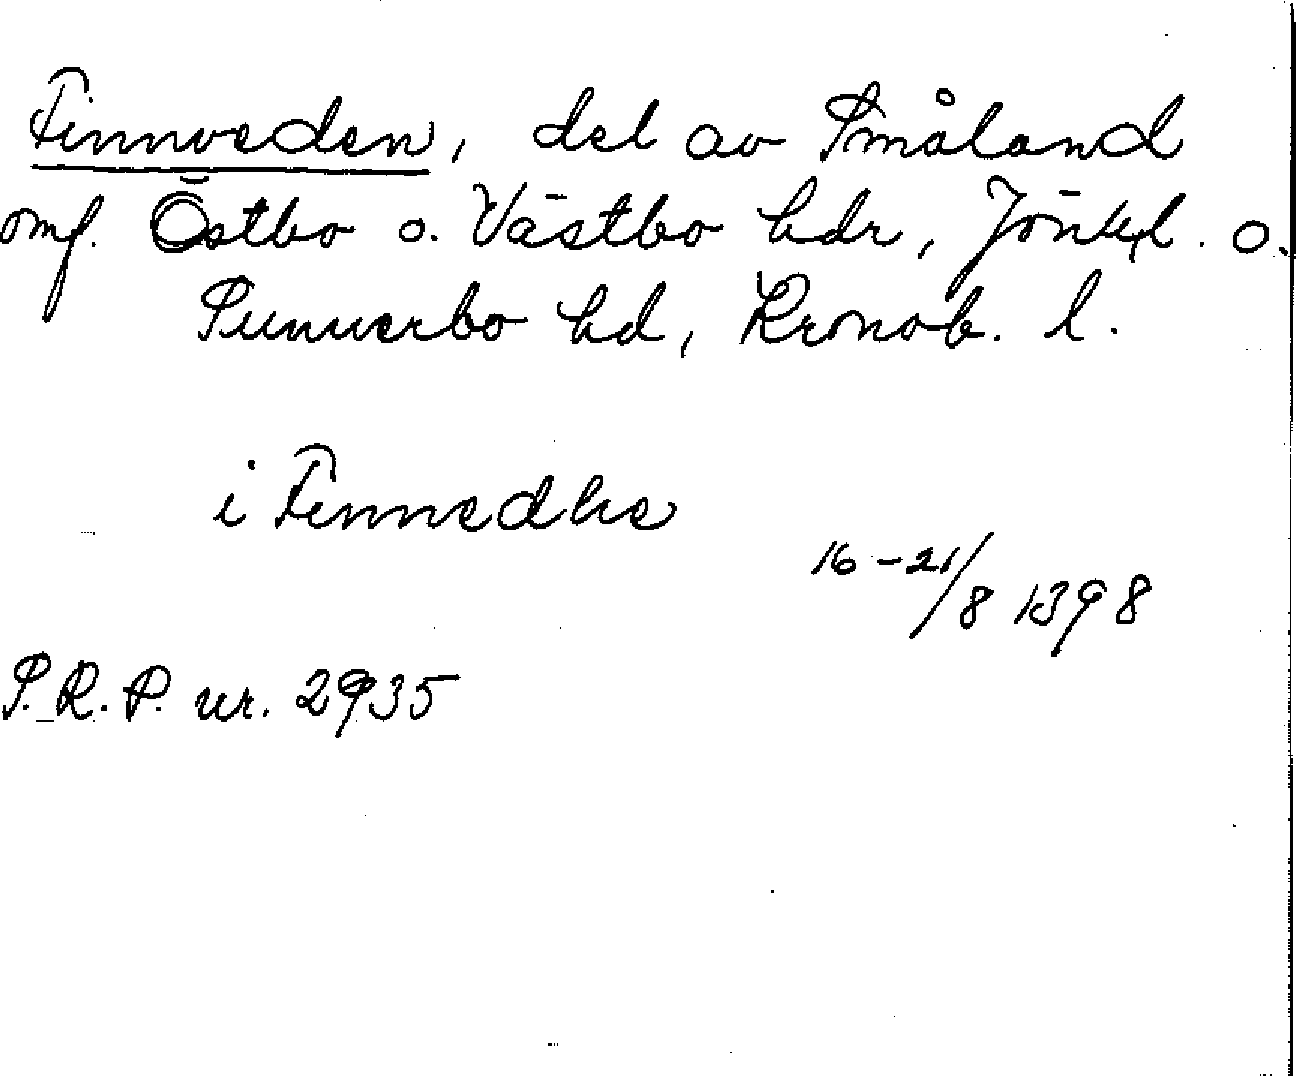 Finnveden, del av Småland
omf. Östbo o. Västbo hdr, Jönk. l. o.
Sunnerbo hd, Kronob. l.
i Finnedhe
16-21/8 1398
S.R.P. nr. 2935